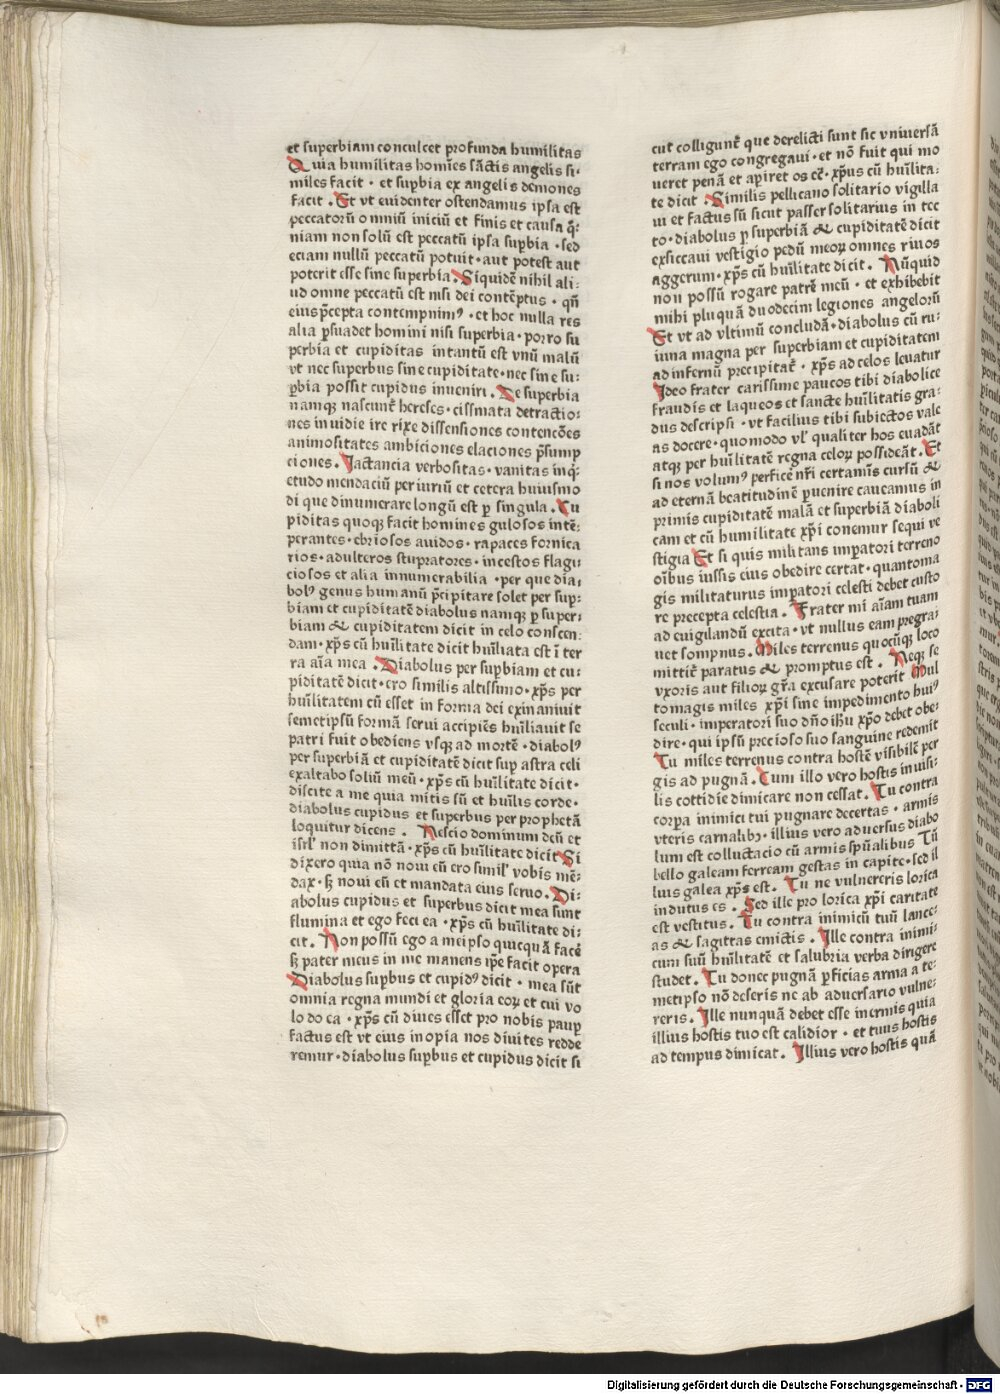 et superbiam conculcet profunda humilitas
Quia humilitas homīes sāctis angelis si⸗
miles facit · et supbia ex angelis demones
facit . Et vt euidenter ostendamus ipsa est
peccatorū omniū iniciū et finis et causa q̄⸗
niam non solū est peccatū ipsa supbia · sed
eciam nullū peccatū potuit · aut potest aut
poterit esse sine superbia . Siquidē nihil ali⸗
ud omne peccatū est nisi dei contēptus · qñ
eius p̄cepta contempnimꝰ · et hoc nulla res
alia ꝑsuadet homini nisi superbia · porro su
perbia et cupiditas intantū est vnū malū
vt nec superbus sine cupiditate · nec sine su⸗
ꝑbia possit cupidus inueniri . De superbia
namqꝫ nascunt̄ hereses · cissmata detractio⸗
nes inuidie ire rixe dissensiones contencōes
animositates ambiciones elaciones p̄sump
ciones . Jactancia verbositas · vanitas inq⸗
etudo mendaciū periuriū et cetera huiusmo
di que dinumerare longū est ꝑ singula . Cu
piditas quoqꝫ facit homines gulosos intē⸗
perantes · ebriosos auidos · rapaces fornica
rios · adulteros stupratores · incestos flagi
ciosos et alia innumerabilia · per que dia⸗
bolꝰ genus humanū p̄cipitare solet per sup⸗
biam et cupiditatē diabolus namqꝫ ꝑ super⸗
biam & cupiditatem dicit in celo conscen⸗
dam · xp̄s cū hūilitate dicit hūiliata est ī ter
ra aīa mea . Diabolus per supbiam et cu⸗
piditatē dicit · ero similis altissimo · xp̄s per
hūilitatem cū esset in forma dei exinaniuit
semetipsū formā serui accipiēs hūiliauit se
patri fuit obediens vsqꝫ ad mortē · diabolꝰ
per superbiā et cupiditatē dicit sup astra celi
exaltabo soliū meū · xp̄s cū hūilitate dicit ·
discite a me quia mitis sū et hūilis corde ·
diabolus cupidus et superbus per prophetā
loquitur dicens . Nescio dominum deū et
isrl̄ non dimittā · xp̄s cū hūilitate dicit Si
dixero quia nō noui eū ero similꝰ vobis mē⸗
dax · sꝫ noui eū et mandata eius seruo . Di⸗
abolus cupidus et superbus dicit mea sunt
flumina et ego feci ea · xp̄s cū hūilitate di⸗
cit . Non possū ego a meipso quicquā facē
sꝫ pater meus in me manens ip̄e facit opera
Diabolus supbus et cupidꝰ dicit · mea sūt
omnia regna mundi et gloria eoꝝ et cui vo
lo do ea · xp̄s cū diues esset pro nobis paup
factus est vt eius inopia nos diuites redde
remur · diabolus supbus et cupidus dicit si
cut colligunt̄ que derelicti sunt sic vniuersā
terram ego congregaui · et nō fuit qui mo
ueret penā et apiret os cē · xp̄us cū hūilita⸗
te dicit . Similis pellicano solitario vigilla
ui et factus sū sicut passer solitarius in tec
to · diabolus ꝑ superbiā & cupiditatē dicit
exsiccaui vestigio pedū meoꝝ omnes riuos
aggerum · xp̄s cū hūilitate dicit . Nūquid
non possū rogare patrē meū · et exhibebit
mihi pluquā duodecim legiones angelorū
Et vt ad vltimū concludā · diabolus cū ru⸗
iuna magna per superbiam et cupiditatem
ad infernū precipitat̄ · xp̄s ad celos leuatur
Jdeo frater carissime paucos tibi diabolice
fraudis et laqueos et sancte hūilitatis gra⸗
dus descripsi · vt facilius tibi subiectos vale
as docere · quomodo vlꝰ qualiter hos euadāt
atqꝫ per hūilitatē regna celoꝝ possideāt . Et
si nos volumꝰ perficē nr̄i certamīs cursū &
ad eternā beatitudinē ꝑuenire caucamus in
primis cupiditatē malā et superbiā diaboli
cam et cū humilitate xp̄i conemur sequi ve
stigia Et si quis militans imꝑatori terreno
oībus iussis eius obedire certat · quantoma
gis militaturus imꝑatori celesti debet custo
re precepta celestia . Frater mi aīam tuam
ad euigilandū excita · vt nullus eam pregra⸗
uet sompnus . Miles terrenus quocūqꝫ loco
mittit̄ paratus & promptus est . Neqꝫ se
vxoris aut filioꝝ gr̄a excusare poterit Mul
tomagis miles xp̄i sine impedimento huiꝰ
seculi · imperatori suo dn̄o ih̄u xp̄o debet obe⸗
dire · qui ipsū precioso suo sanguine redemit
Tu miles terrenus contra hostē visibilē per
gis ad pugnā . Cum illo vero hostis inuisi⸗
lis cottidie dimicare non cessat . Tu contra
corꝑa inimici tui pugnare decertas · armis
vteris carnalibꝫ · illius vero aduersus diabo
lum est colluctacio cū armis sp̄ualibus Tū
bello galeam ferream gestas in capite · sed il
lius galea xp̄s est . Tu ne vulnereris lorica
indutus es . Sed ille pro lorica xp̄i caritate
est vestitus . Tu contra inimicū tuū lance⸗
as & sagittas emictis . Jlle contra inimi⸗
cum suū hūilitatē et salubria verba dirigere
studet . Tu donec pugnā ꝑficias arma a te⸗
metipso nō deseris ne ab aduersario vulne⸗
reris . Jlle nunquā debet esse inermis quia
illius hostis tuo est calidior · et tuus hostis
ad tempus dimicat . Jllius vero hostis quā
Digitalisierung gefördert durch die Deutsche Forschungsgemeinschaft - DFG